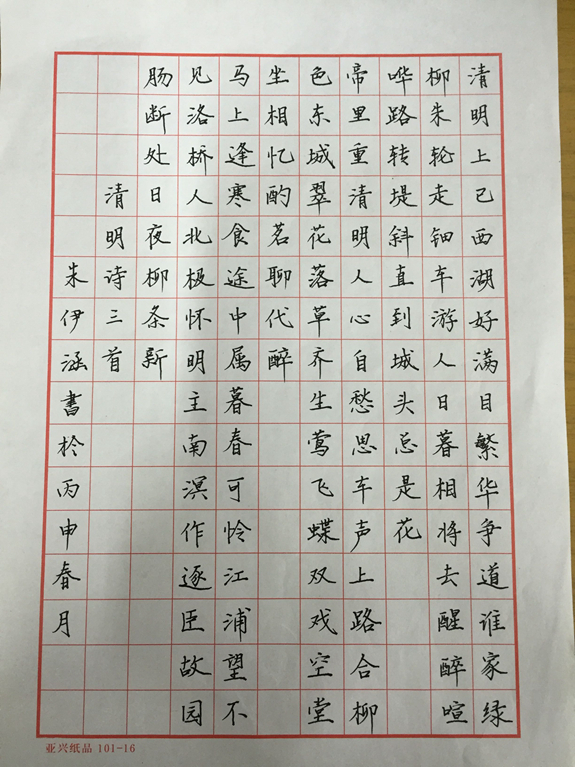 清明上巳西湖好满目繁华争道谁家绿
柳朱轮走钿车游人日暮相将去醒醉喧
哗路转堤斜直到城头总是花
帝里重清明人心自愁思车声上路合柳
色东城翠花落草齐生莺飞蝶双戏空堂
坐相忆酌茗聊代醉
马上逢寒食途中属暮春可怜江浦望不
见洛桥人北极怀明主南溟作逐臣故园
肠断处日夜柳条新
清明诗三首
朱伊涵書於丙申春月
亚兴纸品 101-16